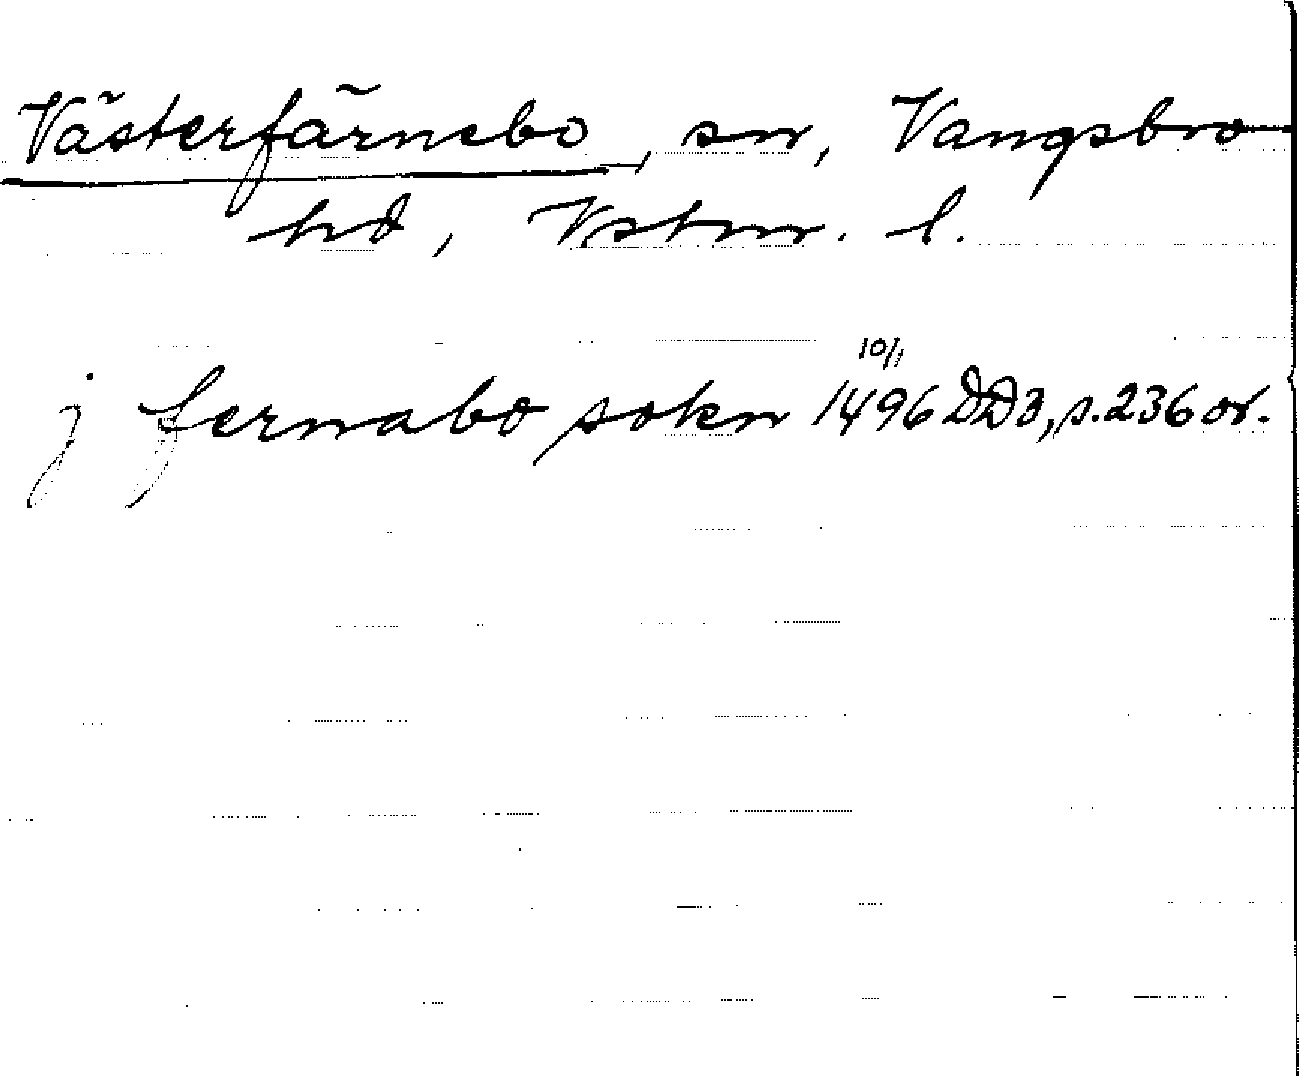 Västerfärnebo, sn, Vangsbro
hd, Vstm. l.
10/1
j fernabo sokn 1496 DD3, s. 236 or.